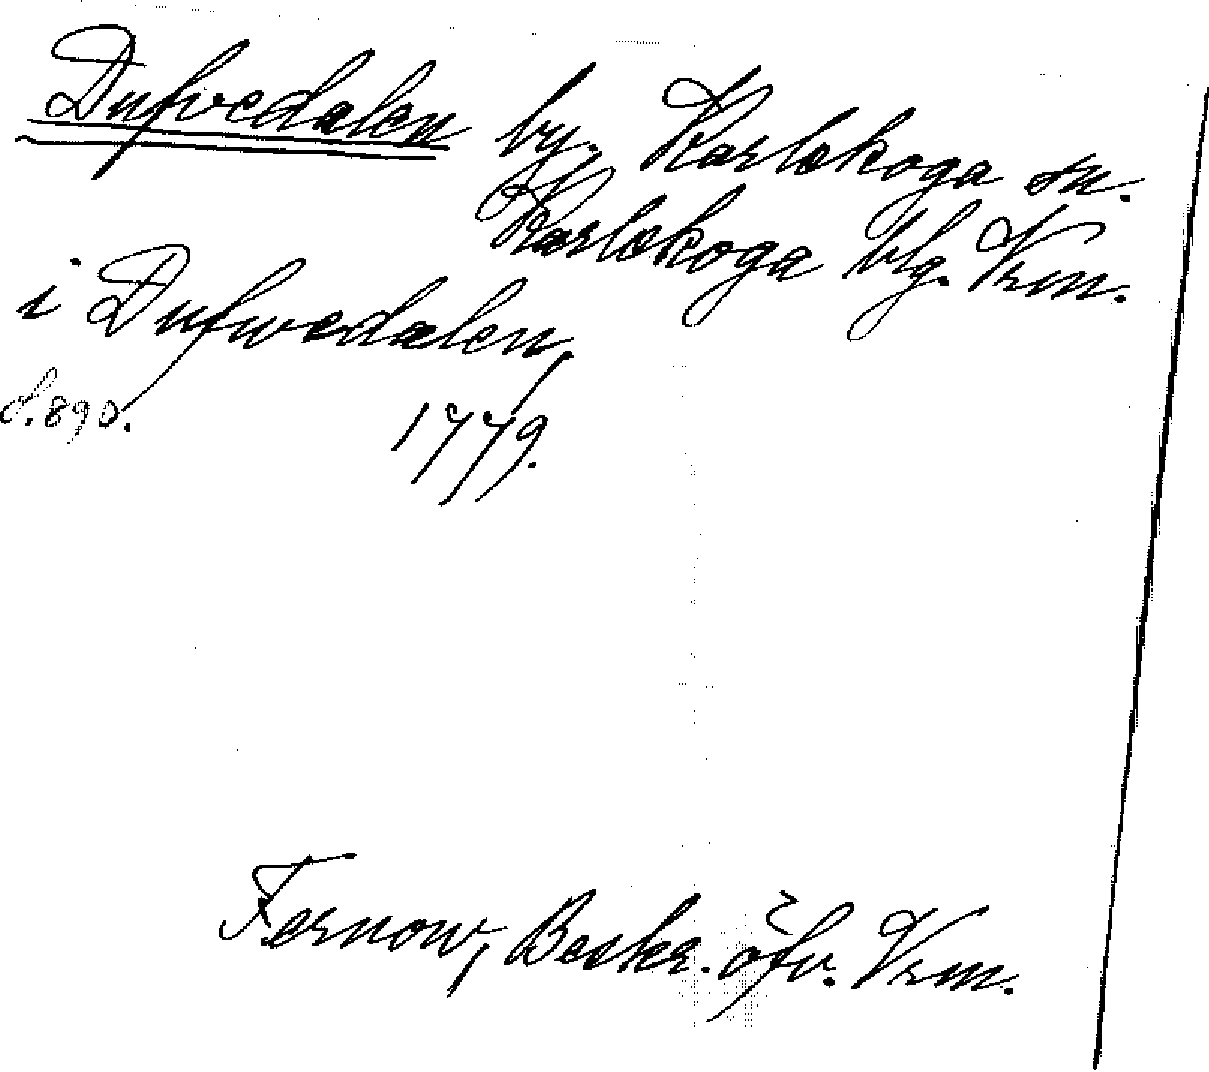 Dufvedalen by, Karlskoga sn.
Karlskoga blg. Vrm.
i Dufwedalen,
s. 890. 1779.
Fernow, Beskr. öfv. Vrm.